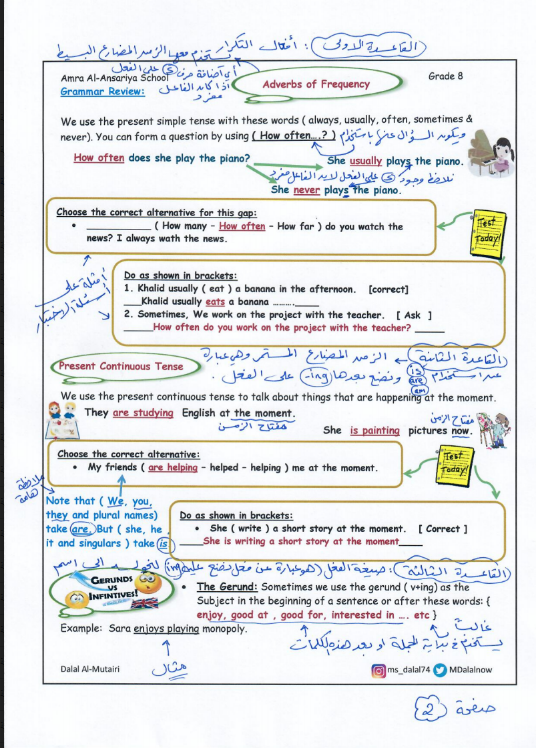 القاعدة الاولى : أفعال التكرار يستخدم معها الزمن المضارع البسيط
Amra Al-Ansariya School
Grammar Review:
أي اضافة حرف (s) على الفعل
اذا كان الفاعل
مفرد
Adverbs of Frequency
Grade 8
We use the present simple tense with these words ( always, usually, often, sometimes &
never). You can form a question by using ( How often....? ) ويكون السؤال عنها باستخدام
How often does she play the piano?
She usually plays the piano.
نلاحظ وجود (s) على الفعل لان الفاعل مفرد
She never plays the piano.
Choose the correct alternative for this gap:
• ____________ ( How many – How often – How far ) do you watch the
news? I always wath the news.
Test
Today!
أمثلة على
اسئلة الاختبار
Do as shown in brackets:
1. Khalid usually ( eat ) a banana in the afternoon. [correct]
___Khalid usually eats a banana ..........____
2. Sometimes, We work on the project with the teacher. [ Ask ]
_____How often do you work on the project with the teacher? _____
القاعدة الثانية ← الزمن المضارع المستمر وهي عبارة
عن استخدام (is are am) ونضع بعدها (ing-) على الفعل .
Present Continuous Tense
We use the present continuous tense to talk about things that are happening at the moment.
They are studying English at the moment.
مفتاح الزمن
مفتاح الزمن
She is painting pictures now.
Choose the correct alternative:
• My friends ( are helping – helped – helping ) me at the moment.
Test
Today!
ملاحظة
هامة
Note that ( We, you,
they and plural names)
take are, But ( she, he ,
it and singulars ) take is
Do as shown in brackets:
• She ( write ) a short story at the moment. [ Correct ]
_____She is writing a short story at the moment____
القاعدة الثالثة : صيغة الفعل (هو عبارة عن فعل نضع عليه ing) للتحول الى اسم
GERUNDS
VS
INFINTIVES!
• The Gerund: Sometimes we use the gerund ( v+ing) as the
Subject in the beginning of a sentence or after these words: {
enjoy, good at , good for, interested in .... etc }
غالباً
يستخدم في بداية الجملة او بعد هذه الكلمات
Example: Sara enjoys playing monopoly.
مثال
Dalal Al-Mutairi
ms_dalal74
MDalalnow
صفحة 2